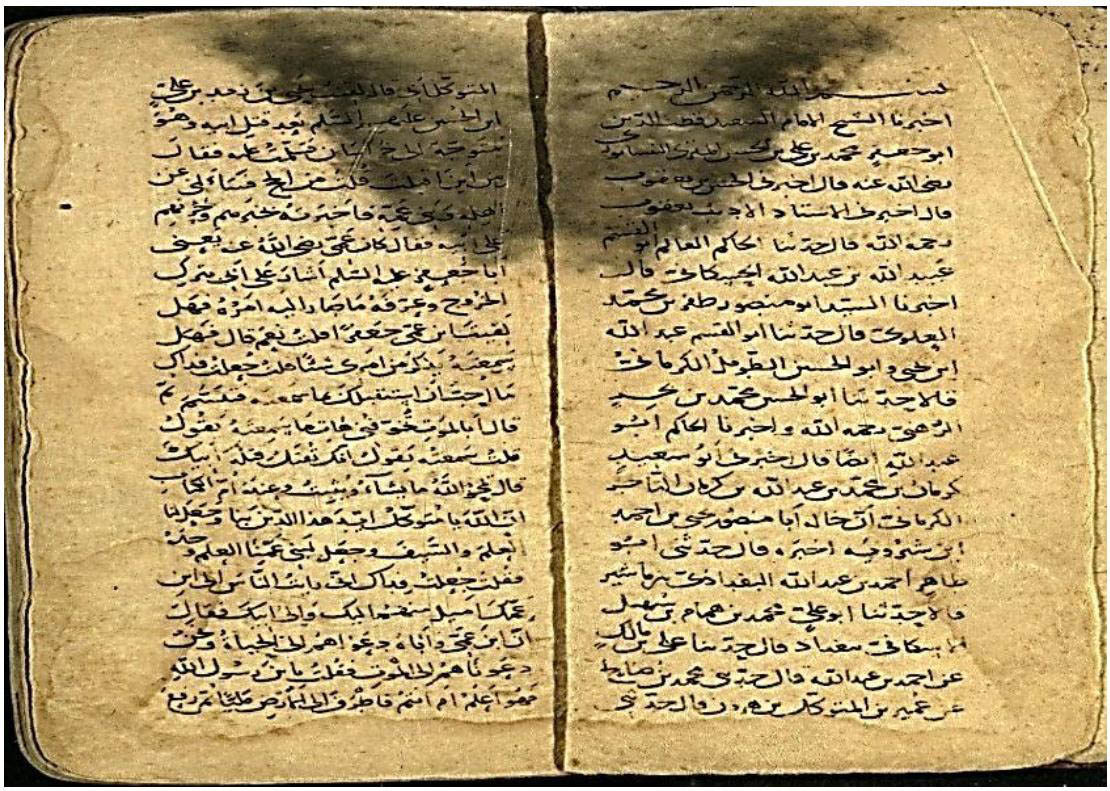 بسم الله الرحمن الرحيم
اخبرنا الشيخ الامام السعيد قطب الدين
ابو جعفر محمد بن علي بن الحسن المقرئ النيسابوري
رضي الله عنه قال اخبرني الحسن بن يعقوب
قال اخبرني الاستاد الاديب يعقوب
رحمه الله قال حدثنا الحاكم العالم ابو القسم
عبيد الله بن عبدالله الحسكاني قال
اخبرنا السيد ابو منصور ظفر بن محمد
العلوي قال حدثنا ابو القسم عبد الله
ابن يحيى و ابو الحسن الكرماني
قالا حدثنا ابو الحسن محمد بن بحر
الرهني رحمه الله و اخبرنا الحاكم ابو
عبد الله ايضا قال اخبرني ابو سعيد
كرمان بن محمد بن عبد الله بن كرمان التاجر
الكرماني ان خاله ابا منصور يحيى بن احمد
ابن شيرويه اخبره قال حدثني ابو
طاهر احمد بن عبد الله البغدادي بنرماشير
قالا حدثنا ابو علي محمد بن همام بن سهيل
الاسكافي ببغداد قال حدثنا علي بن مالك
عن احمد بن عبد الله قال حدثني محمد بن صالح
عن عمير بن المتوكل بن هرون قال حدثني
المتوكل ابي قال لقيت يحيى بن زيد بن علي
ابن الحسين عليهم السلم بعد قتل ابيه وهو
متوجه الى خراسان فسلمت عليه فقال
من اين اقبلت قلت من الحج فسألني عن
اهله وبني عمه فاخبرته بخبرهم وحزنهم
على ابيه فقال كان عمي رضي الله عنه يعني
ابا جعفر عليه السلم اشار على ابي بترك
الخروج وعرفه ما صار اليه امره فهل
لقيت ابن عمي جعفرا قلت نعم قال فهل
سمعته يذكر من امري شيئا قلت جعلت فداك
ما احب ان استقبلك بما سمعته فتبسم ثم
قال ابالموت تخوفني هات ما سمعته يقول
قلت سمعته يقول انك تقتل قتلة ابيك
قال يمحو الله ما يشاء ويثبت وعنده ام الكتاب
ان الله يا متوكل ايد هذا الدين بنا وجعل لنا
العلم والسيف وجعل لبني عمنا العلم وحده
فقلت جعلت فداك اني رايت الناس الى ابن
عمك اميل منهم اليك والى ابيك فقال
ان ابن عمي واباه دعواهم الى الحياة ونحن
دعوناهم الى الموت فقلت يا ابن رسول الله
فهو اعلم ام انتم فاطرق الى الارض مليا ثم رفع